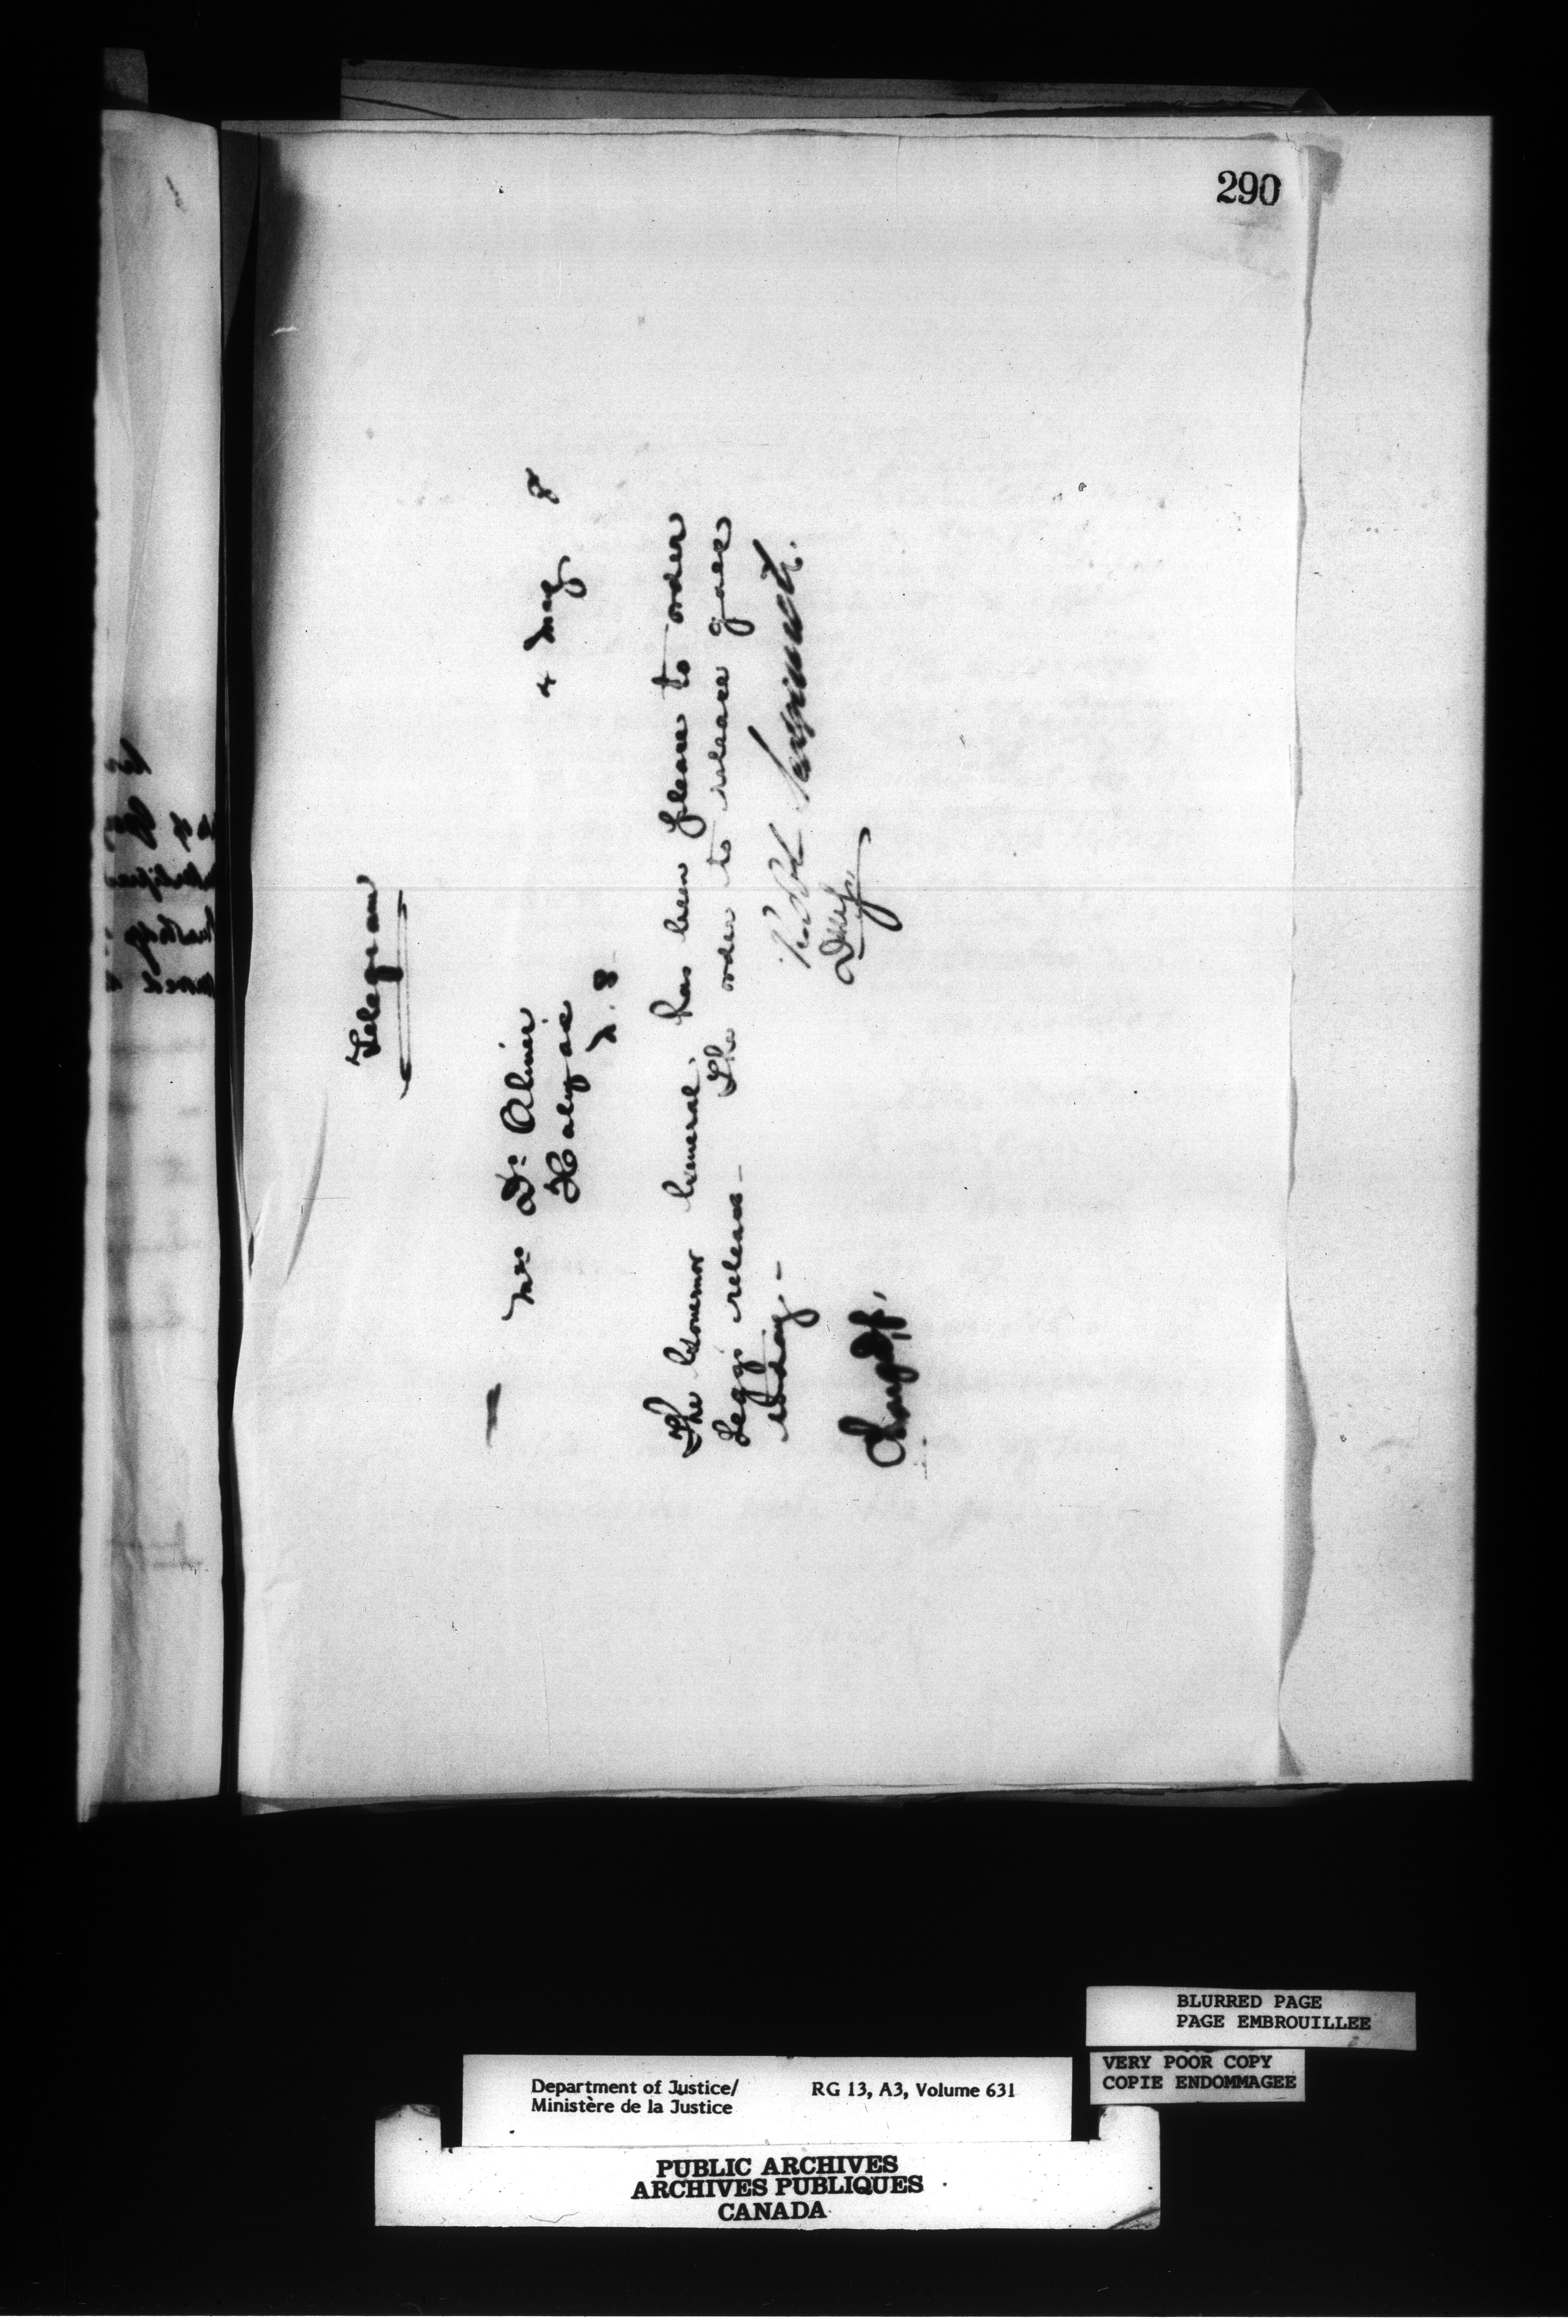 290
Telegram
4 May 8
Mrs Dr Almir
Halyax
N. S
The Governor General has been please to order
Legg release - The order to release goes
today -
Chargd J,
BLURRED PAGE
PAGE EMBROUILLEE
VERY POOR COPY
COPIE ENDOMMAGEE
Department of Justice/
Ministère de la Justice
RG 13, A3, Volume 631
PUBLIC ARCHIVES
ARCHIVES PUBLIQUES
CANADA